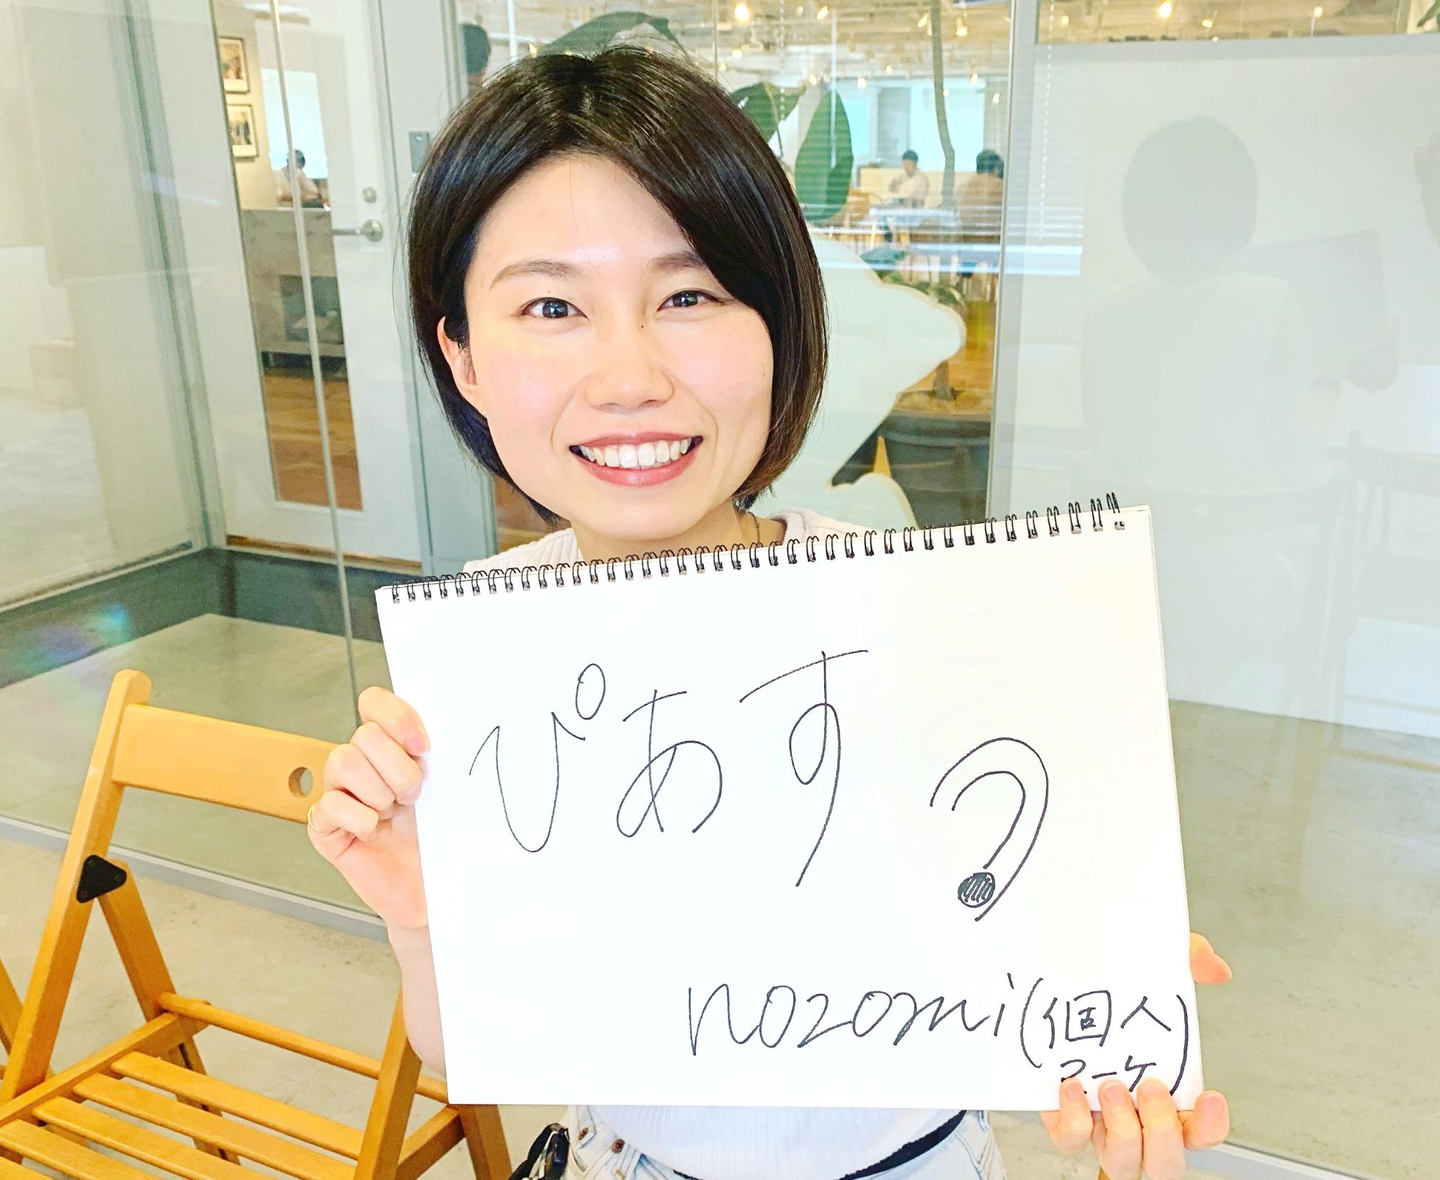 ぴあす
nozomi(個人
マーケ)